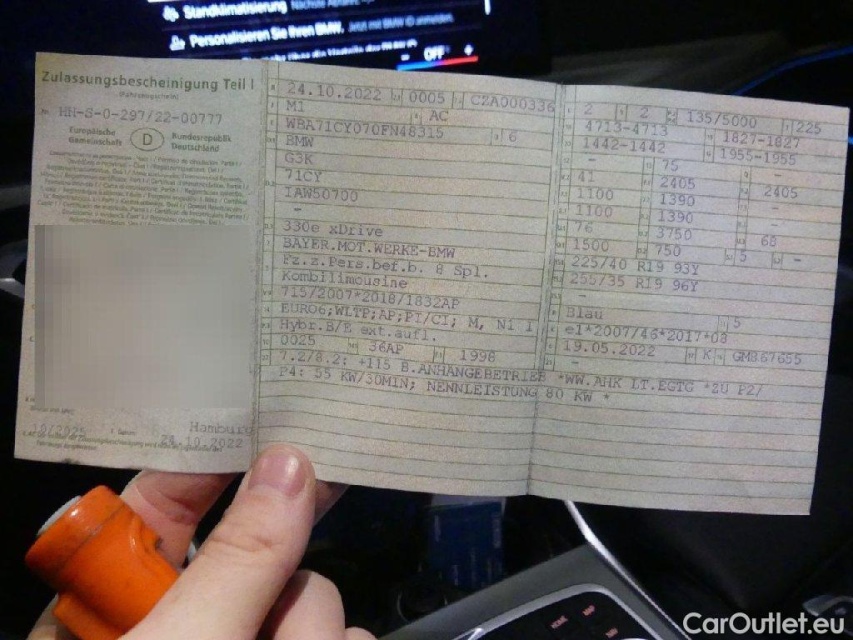 Standklimatisierung
Personalisieren Sie Ihren BMW. Jetzt mit BMW ID anmelden
OFF
Zulassungsbescheinigung Teil I
HH-S-0-297/22-00777
Europäische
Gemeinschaft
D
Bundesrepublik
Deutschland
Hamburg
10/2025
24.10.2022
24.10.2022 0005 CZA000336
M1 AC
WBA71CY070FN48315 6
BMW
G3K
71CY
IAW50700
–
330e xDrive
BAYER.MOT.WERKE-BMW
Fz.z.Pers.bef.b. 8 Spl.
Kombilimousine
715/2007*2018/1832AP
EURO6;WLTP;AP;PI/CI; M, N1 I
Hybr.B/E ext.aufl.
0025 36AP 1998
7.2/8.2: +115 B.ANHANGEBETRIEB *WW.AHK LT.EGTG *ZU P2/
P4: 55 KW/30MIN; NENNLEISTUNG 80 KW *
2 2 135/5000 225
4713-4713 1827-1827
1442-1442 1955-1955
– 75 –
41 2405 2405
1100 1390
1100 1390
76 3750 68
1500 750 5 –
225/40 R19 93Y
255/35 R19 96Y
–
Blau 5
e1*2007/46*2017*08
19.05.2022 K GM867655
CarOutlet.eu